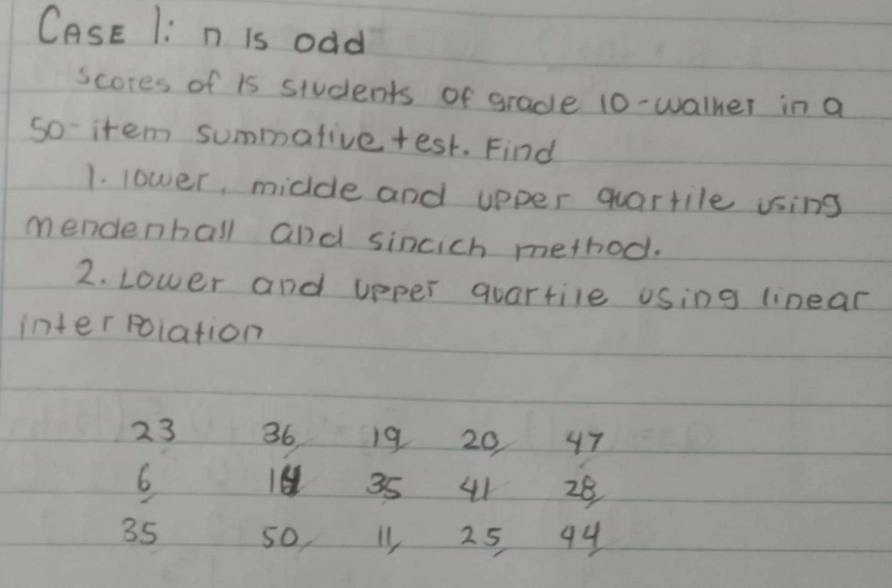 CASE 1: n is odd
scores of 15 students of grade 10-walker in a
50-item summative test. Find
1. lower, middle and upper quartile using
mendenhall and sincich method.
2. Lower and upper quartile using linear
interpolation
23 36 19 20 47
6 35 41 28
35 50 11 25 44